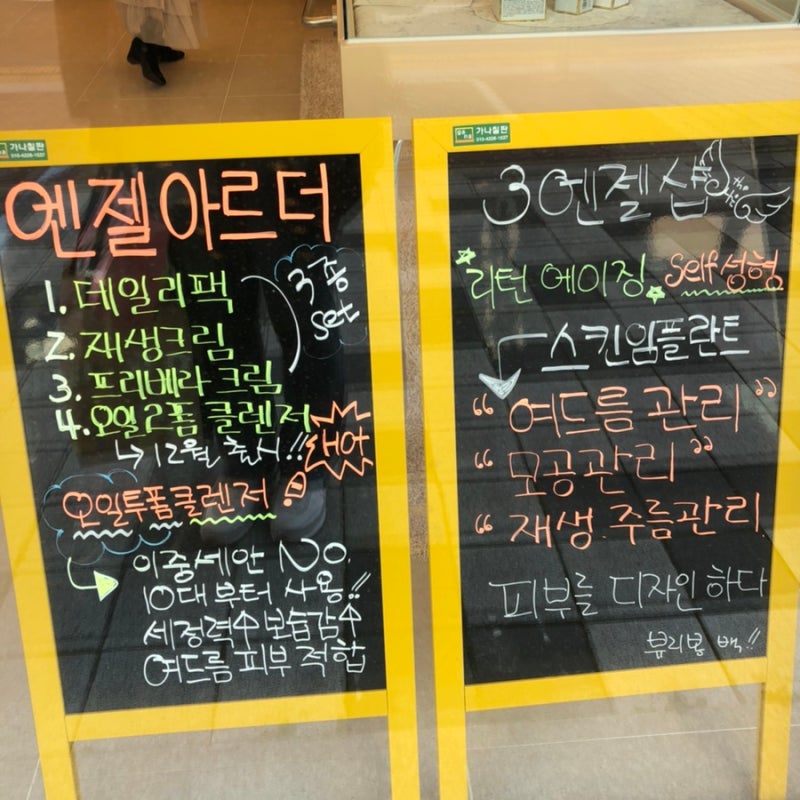 가나칠판
엔젤아르더
1. 데일리팩
2. 재생크림
3. 프리베라 크림
4. 오일2폼 클렌저
3종
set
↳ 12월 출시!!
오일투폼클렌저
이중세안 NO.
10대부터 사용!!
세정력↑보습감↑
여드름 피부 적합
가나칠판
3 엔젤샵
리턴 에이징. self 성형
스킨임플란트
“ 여드름 관리 ”
“ 모공관리 ”
“ 재생.주름관리
피부를 디자인하다
뷰리봄 백!!